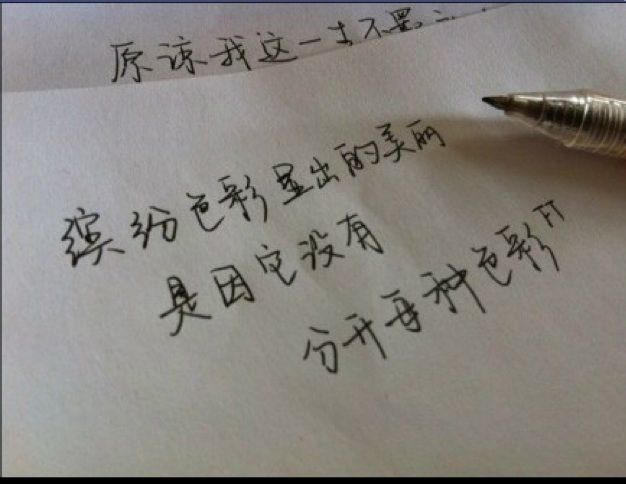 原谅我这一生不羁
缤纷色彩显出的美丽
是因它没有
分开每种色彩